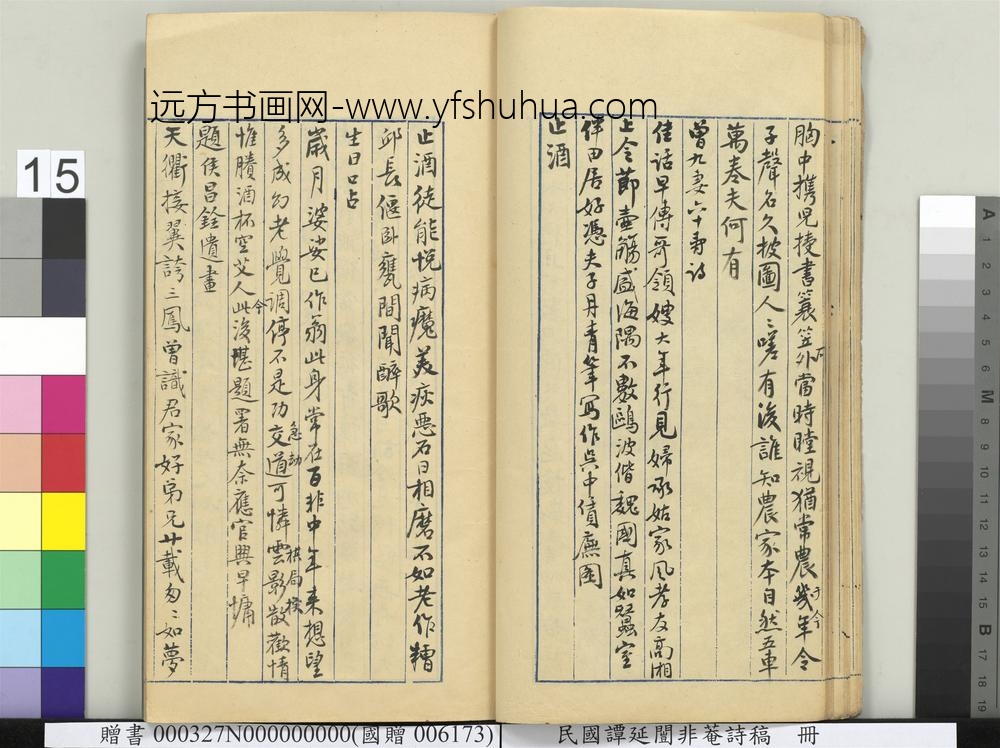 远方书画网-www.yfshuhua.com
胸中携児接書蓑笠外當時瞠視猶常農幾年令
于今
子聲名久披圖人々嗟有後誰知農家本自然五車
萬卷夫何有
曾九妻六十壽詩
佳話早傳哥領嫂大年行見婦承姑家風孝友高湘
上令節壺觴盛海隅不數鷗波偕魏國真如蠶室
伴田居好憑夫子丹青筆寫作吳中賃廡圖
止酒
止酒徒能悅病魔美疢惡石日相磨不如老作糟
邱長偃臥甕間聞醉歌
生日口占
歲月婆娑已作翁此身常在百非中年来想望
多成幻老覺調停不是功交道可憐雲影散歡情
急劫
棋局換
惟賸酒杯空艾人此後堪題署無奈應官興早慵
今
題侯昌銓遺畫
天衢接翼誇三鳳曾識君家好弟兄廿載匆々如夢
15
A
1
2
3
4
5
6
M
8
9
10
11
12
13
14
15
B
17
18
19
贈書 000327N000000000(國贈 006173)
民國譚延闓非菴詩稿 冊